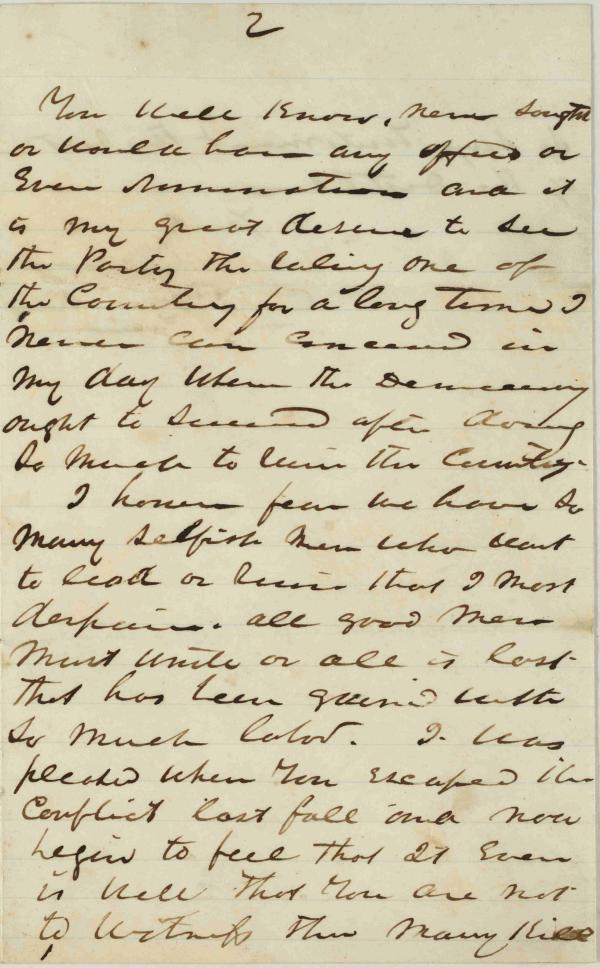 2
You well Know, never sought
or would have any office or
Even nomination and it
is my great desire to see
the Party the ruling one of
the Country for a long time I
never can conceed in
my day when the Democracy
ought to succeed after doing
So much to ruin the Country.
I however fear we have So
many selfish men who want
to lead or ruin that I most
despair. all good men
Must unite or all is lost
that has been gained with
So much labor. I was
pleased when You Escaped the
Conflict last fall and now
begin to feel that It Even
is well that You are not
to Witness the many